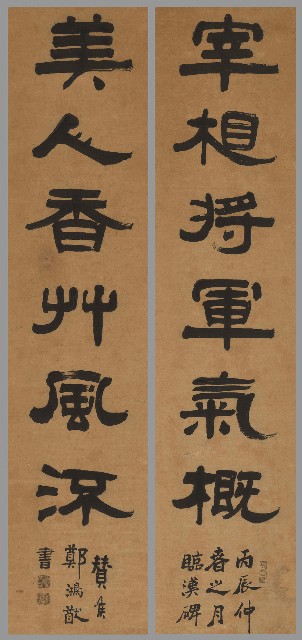 宰相将軍氣概
丙辰仲
春之月
臨漢碑
美人香艸風流
贊侯
鄭鴻猷
書